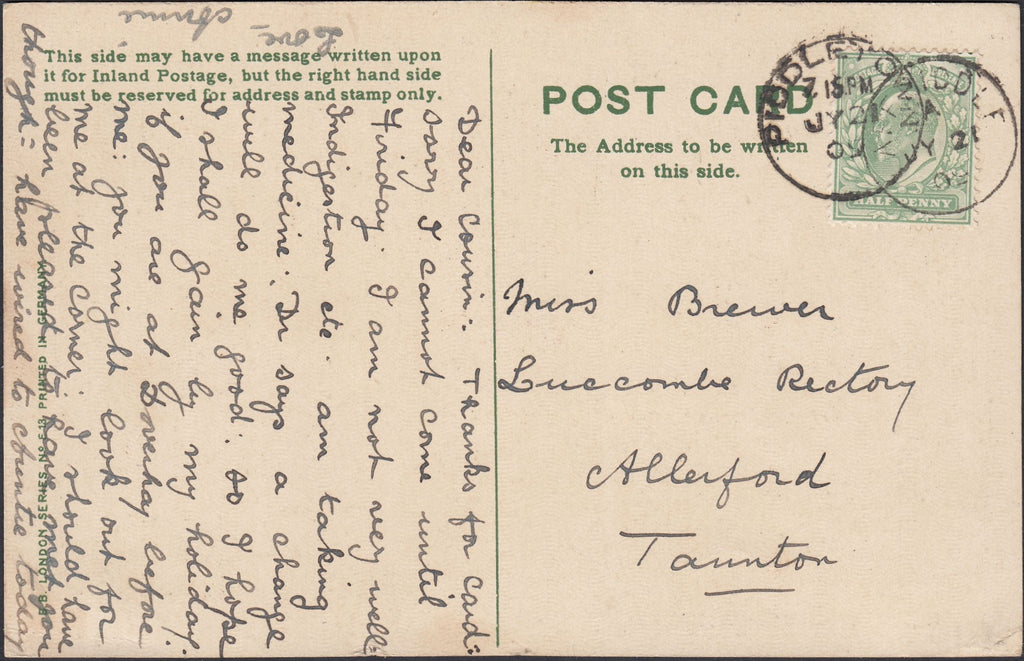 This side may have a message written upon
it for Inland Postage, but the right hand side
must be reserved for address and stamp only.
Dear Cousin:- Thanks for card:
sorry I cannot come until
Friday. I am not very well:
Indigestion etc. am taking
medicine. Dr says a change
will do me good: so I hope
I shall gain by my holiday.
if you are at Doverhay before
me: you might look out for
me at the corner. I should have
been pleased to have met you
though = have wired to Auntie today
Love
Annie
B.B. LONDON SERIES No E 13 PRINTED IN GERMANY
POST CARD
The Address to be written
on this side.
PIDDLETOWN
2 15 PM
JY 21
09
HALFPENNY
Miss Brewer
Luccombe Rectory
Allerford
Taunton